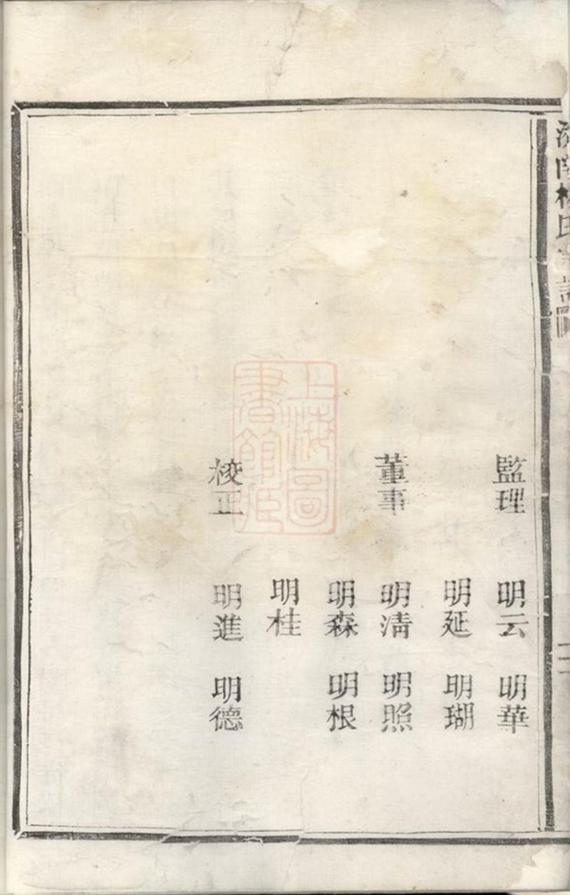 監理 明云 明華
明延 明瑚
董事 明清 明照
明森 明根
明桂
校正 明進 明德
上海圖書館藏